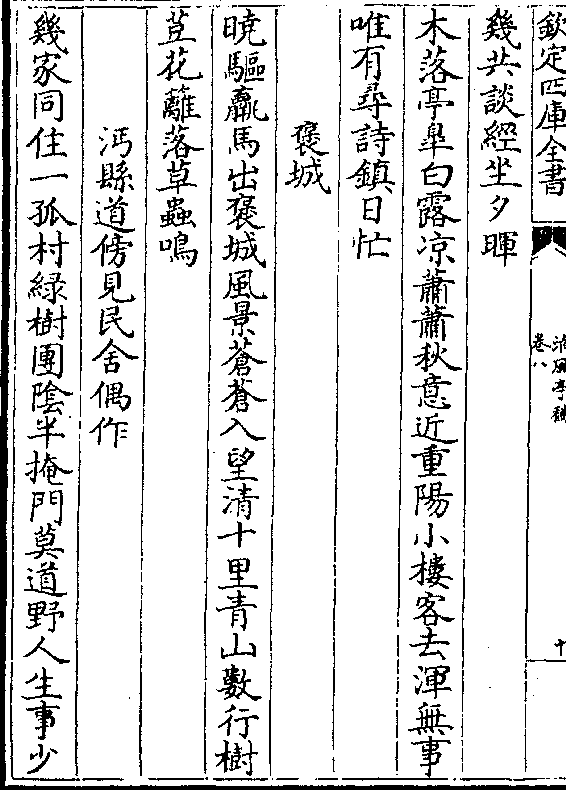 欽定四庫全書
清風亭稿
卷八
十
幾共談經坐夕暉
木落亭臯白露凉蕭蕭秋意近重陽小樓客去渾無事
唯有尋詩鎮日忙
褒城
曉驅羸馬出褒城風景蒼蒼入望清十里青山數行樹
荳花籬落草蟲鳴
沔縣道傍見民舍偶作
幾家同住一孤村緑樹團陰半掩門莫道野人生事少